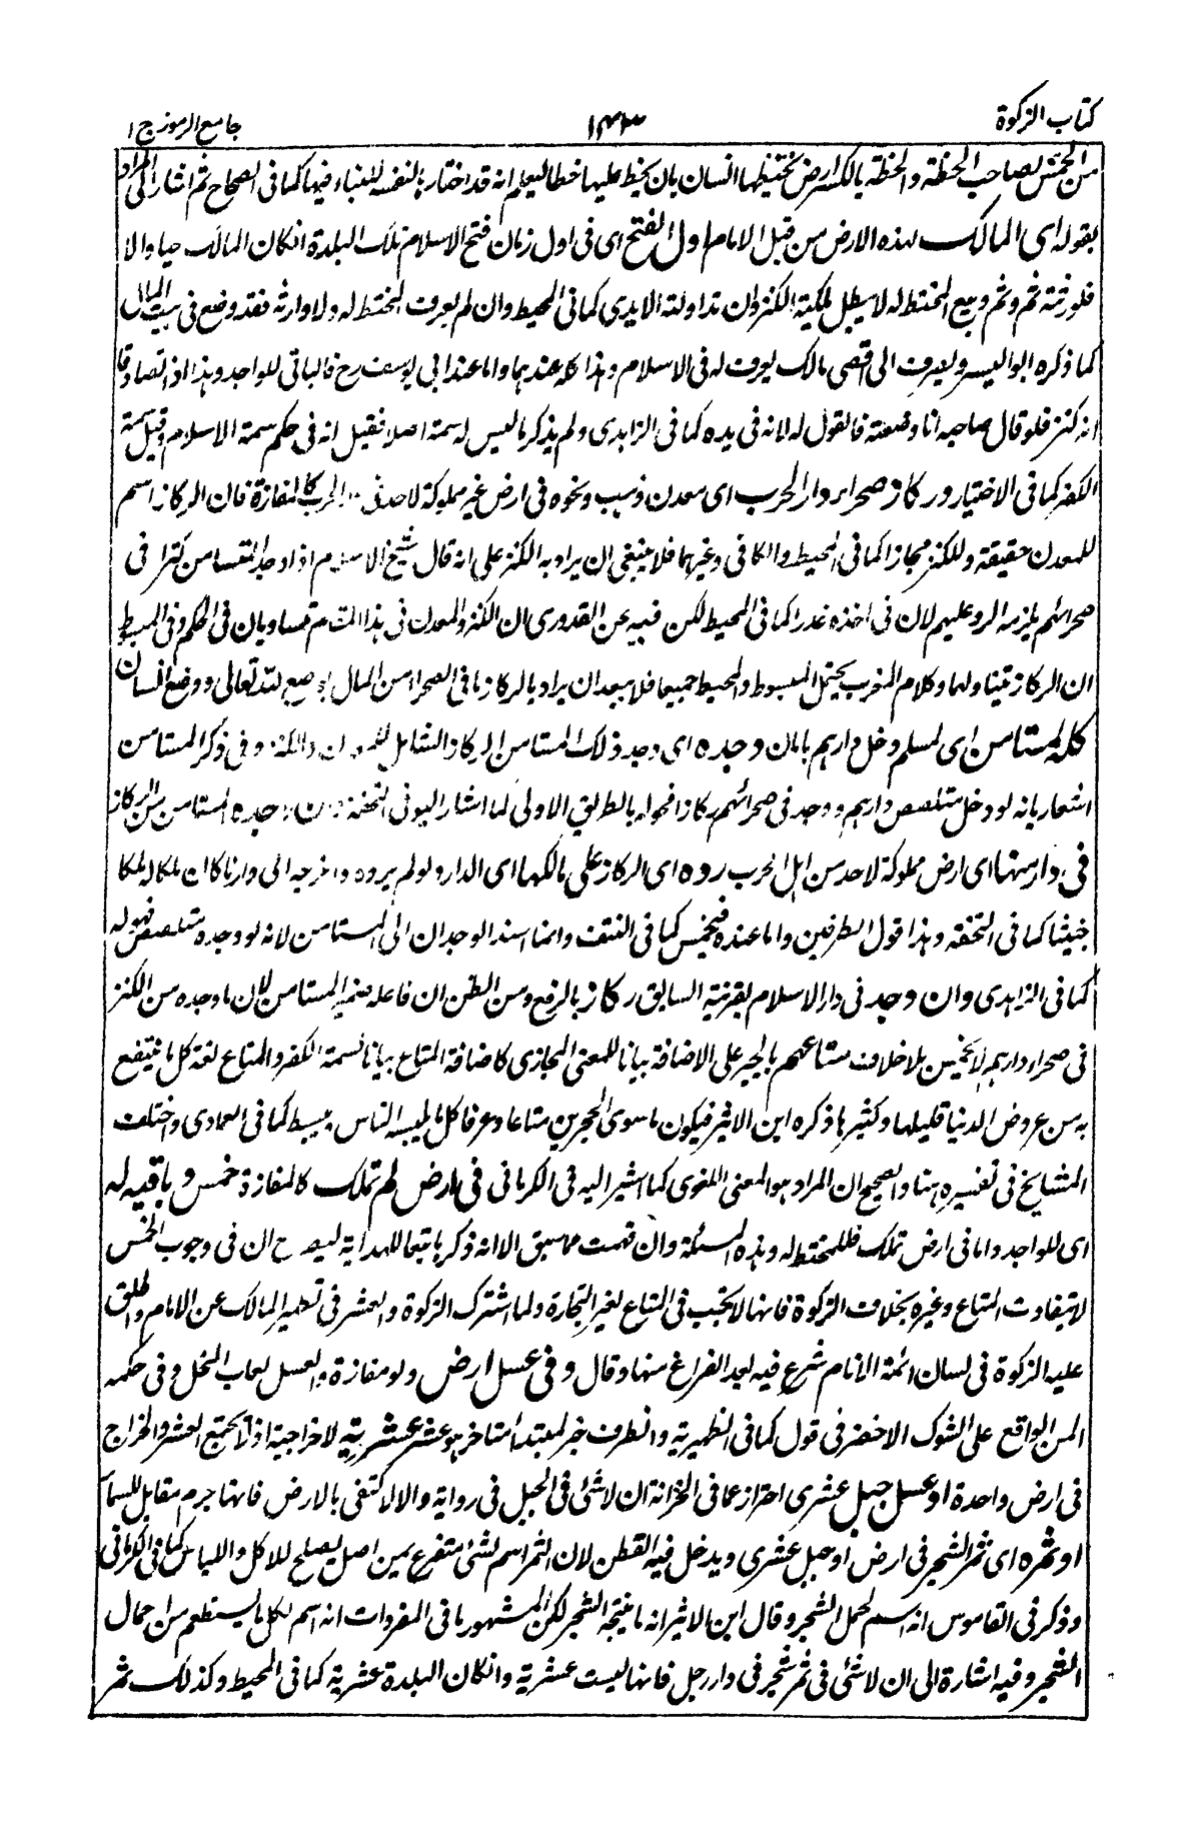 كتاب الزكوة ١٤٣ جامع الرموز ج ١
من الخمس لصاحب الخطة والخطة بالكسر ارض يختطها انسان بان يخط عليها خطا ليعلم انه قد اختارها لنفسه للبناء فيها كما فى الصحاح ثم اشار الى المراد
بقوله اى المالك لهذه الارض من قبل الامام اول الفتح اى فى اول زمان فتح الاسلام تلك البلدة انكان المالك حيا والا
فلورثته ثم وثم وبيع المختط له لا يبطل ملكية الكنز وان تداولته الايدى كما فى المحيط وان لم يعرف المختط له ولا وارثه فقد وضع فى بيت المال
كما ذكره ابو اليسر ويصرف الى اقصى مالك يعرف له فى الاسلام وهذا كله عندهما واما عند ابى يوسف رح فالباقى للواجد وهذا اذا تصادقا
انه كنز فلو قال صاحبه انا وضعته فالقول له لانه فى يده كما فى الزاهدى ولم يذكر ما ليس له سمة اصلا فقيل انه فى حكم سمة الاسلام وقيل سمة
الكفر كما فى الاختيار وركاز صحراء دار الحرب اى معدن ذهب ونحوه فى ارض غير مملوكة لاحد فى الحرب كالمفازة فان الركاز اسم
للمعدن حقيقة وللكنز مجازا كما فى المحيط والكافى وغيرهما فلا ينبغى ان يراد به الكنز على انه قال شيخ الاسلام اذا وجد المستامن كنزا فى
صحرائهم يلزمه الرد عليهم لان فى اخذه غدرا كما فى المحيط لكن فيه عن القدورى ان الكنز والمعدن فى هذا متساويان فى الحكم وفى المبسوط
ان الركاز يتناولهما وكلام المغرب يحتمل المبسوط والمحيط جميعا فلا يبعد ان يراد بالركاز ما فى الصحراء من المال بوضع الله تعالى ووضع انسان
كله لمستامن اى لمسلم دخل دارهم بامان وجده اى وجد ذلك المستامن الركاز الشامل للمعدن والكنز وفى ذكر المستامن
اشعار بانه لو دخل متلصص دارهم ووجد فى صحرائهم ركازا فهو له بالطريق الاولى كما اشار اليه فى التحفة وان وجده المستامن من الركاز
فى دار منها اى ارض مملوكة لاحد من اهل الحرب رده اى الركاز على مالكها اى الدار ولو لم يرده واخرجه الى دارنا كان ملكا له ملكا
خبيثا كما فى التحفة وهذا قول الطرفين واما عنده فيخمس كما فى النتف وانما اسند الوجدان الى المستامن لانه لو وجده متلصص فهو له
كما فى الزاهدى وان وجد فى دار الاسلام بقرينة السابق ركاز بالرفع ومن الظن ان فاعله ضمير المستامن لان ما وجده من الكنز
فى صحراء دارهم لا يخمس بلا خلاف متاعهم بالجر على الاضافة بيانا للمعنى المجازى كاضافة المتاع بيانا لسمة الكفر والمتاع لغة كل ما ينتفع
به من عروض الدنيا قليلها وكثيرها ذكره ابن الاثير فيكون ما سوى الحجرين متاعا وعرفا كل ما يلبسه الناس ويبسط كما فى العمادى واختلف
المشايخ فى تفسيره هنا والصحيح ان المراد هو المعنى اللغوى كما اشير اليه فى الكرمانى فى ارض لم تملك كالمفازة خمس وباقيه له
اى للواجد واما فى ارض تملك فللمختط له وهذه المسئلة وان فهمت مما سبق الا انه ذكرها تبعا للهداية ليصرح ان فى وجوب الخمس
لا يتفاوت المتاع وغيره بخلاف الزكوة فانها لا تجب فى المتاع لغير التجارة ولما اشترك الزكوة والعشر فى تطهير المالك عن الاثام واطلق
عليه الزكوة فى لسان ائمة الانام شرع فيه بعد الفراغ منها وقال وفى عسل ارض ولو مفازة والعسل لعاب النحل وفى حكمه
المن الواقع على الشوك الاخضر فى قول كما فى الظهيرية والظرف خبر لمبتدأ متاخر هو عشر عشرية لا خراجية اذ لا يجتمع العشر والخراج
فى ارض واحدة او عسل جبل عشرى احتراز عما فى الخزانة ان لا شئ فى الجبل فى رواية والا لاكتفى بالارض فانها جرم مقابل للسماء
او ثمره اى ثمر الشجر فى ارض او جبل عشرى ويدخل فيه القطن لان الثمر اسم لشئ متفرع من اصل يصلح للاكل واللباس كما فى الكرمانى
وذكر فى القاموس انه اسم لحمل الشجر وقال ابن الاثير انه ما ينتجه الشجر لكن المشهور ما فى المفردات انه اسم لكل ما يستطعم من احمال
الشجر وفيه اشارة الى ان لا شئ فى ثمر شجر فى دار رجل فانها ليست عشرية وانكان البلدة عشرية كما فى المحيط وكذلك ثمر